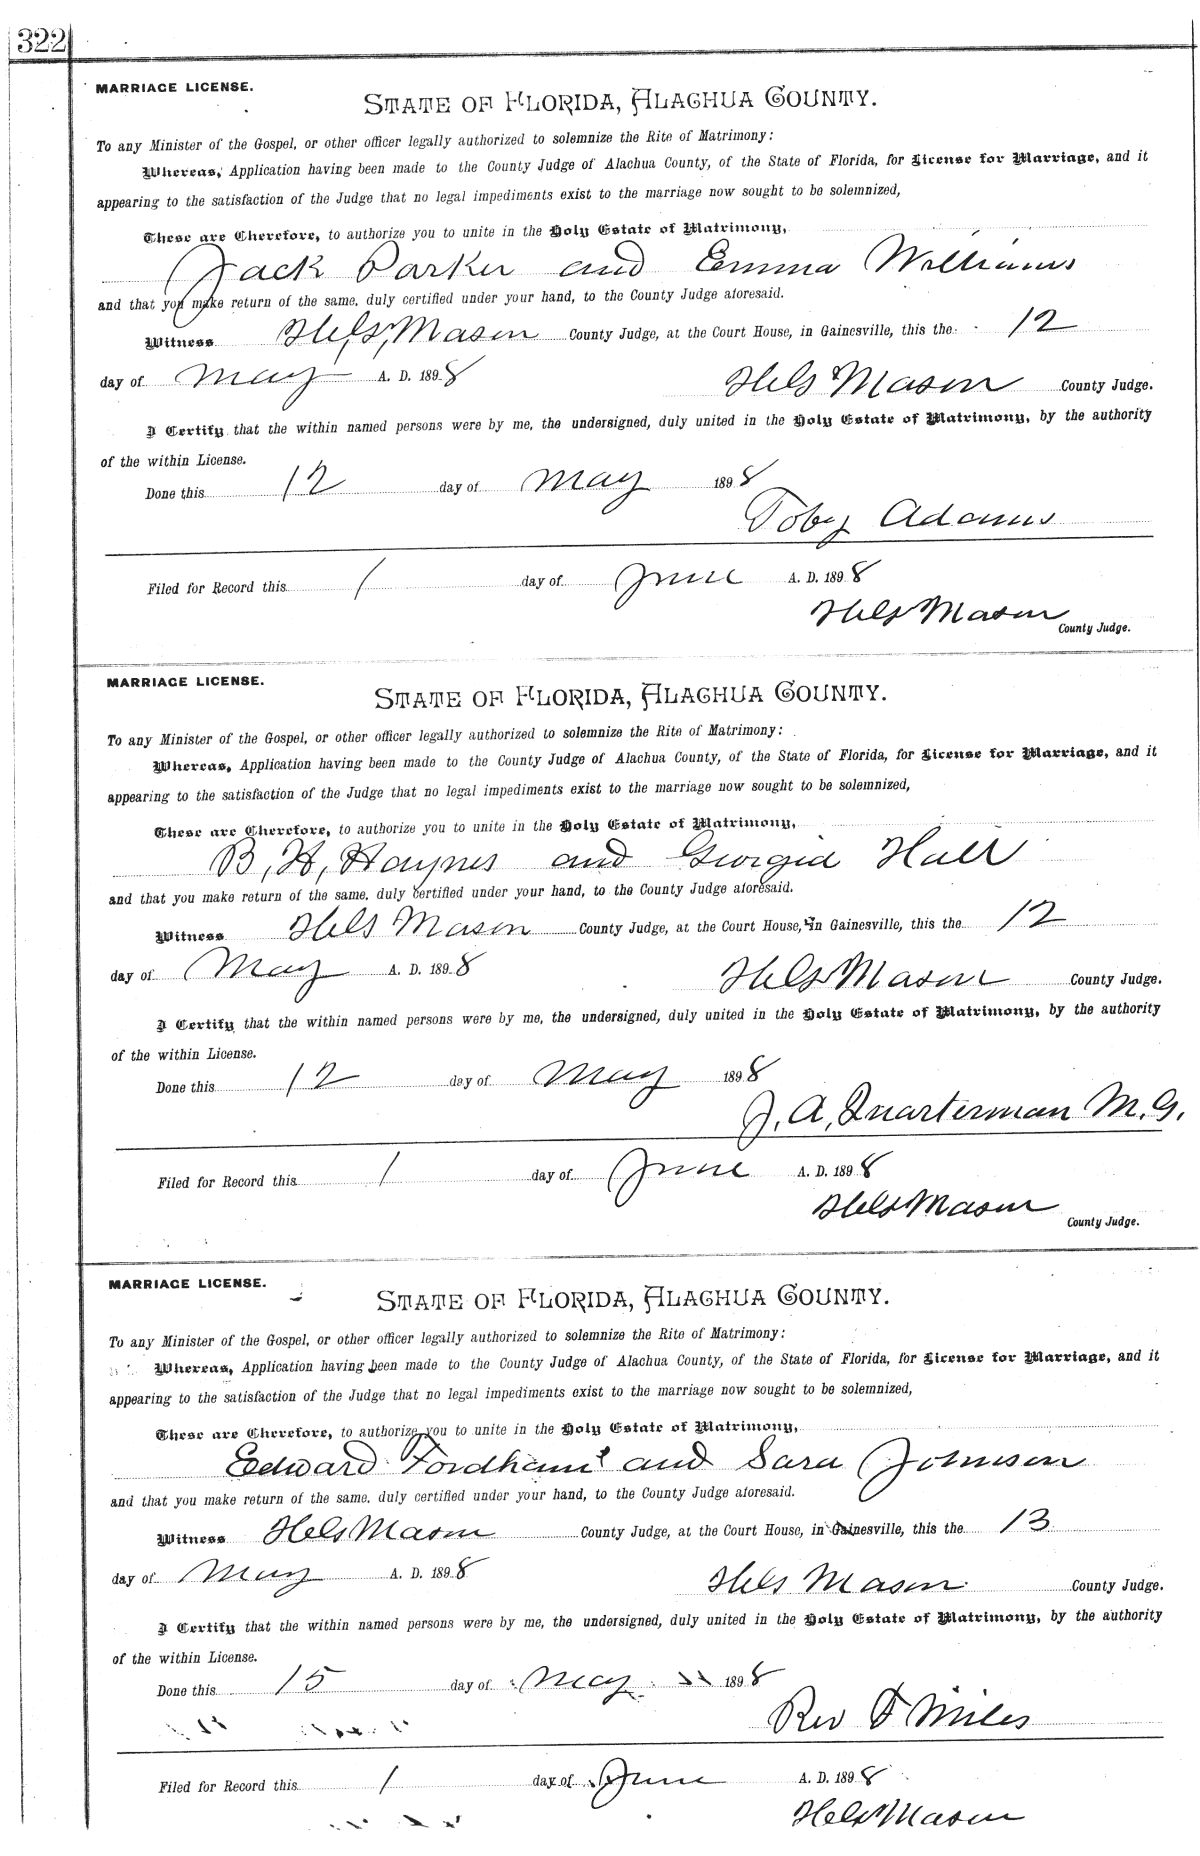 322
MARRIAGE LICENSE.
STATE OF FLORIDA, ALACHUA COUNTY.
To any Minister of the Gospel, or other officer legally authorized to solemnize the Rite of Matrimony:
Whereas, Application having been made to the County Judge of Alachua County, of the State of Florida, for License for Marriage, and it
appearing to the satisfaction of the Judge that no legal impediments exist to the marriage now sought to be solemnized,
These are Therefore, to authorize you to unite in the Holy Estate of Matrimony,
Jack Parker and Emma Williams
and that you make return of the same, duly certified under your hand, to the County Judge aforesaid.
Witness H. S. Mason County Judge, at the Court House, in Gainesville, this the 12
day of May A. D. 1898 County Judge.
I Certify that the within named persons were by me, the undersigned, duly united in the Holy Estate of Matrimony, by the authority
of the within License.
Done this 12 day of May 1898
Toby Adams
Filed for Record this 1 day of June A. D. 1898
Mason
County Judge.
MARRIAGE LICENSE.
STATE OF FLORIDA, ALACHUA COUNTY.
To any Minister of the Gospel, or other officer legally authorized to solemnize the Rite of Matrimony:
Whereas, Application having been made to the County Judge of Alachua County, of the State of Florida, for License for Marriage, and it
appearing to the satisfaction of the Judge that no legal impediments exist to the marriage now sought to be solemnized,
These are Therefore, to authorize you to unite in the Holy Estate of Matrimony,
B. H. Haynes and Georgia Hall
and that you make return of the same, duly certified under your hand, to the County Judge aforesaid.
Witness Mason County Judge, at the Court House, in Gainesville, this the 12
day of May A. D. 1898 Mason County Judge.
I Certify that the within named persons were by me, the undersigned, duly united in the Holy Estate of Matrimony, by the authority
of the within License.
Done this 12 day of May 1898
J. A. Quarterman M. G.
Filed for Record this 1 day of June A. D. 1898
Mason
County Judge.
MARRIAGE LICENSE.
STATE OF FLORIDA, ALACHUA COUNTY.
To any Minister of the Gospel, or other officer legally authorized to solemnize the Rite of Matrimony:
Whereas, Application having been made to the County Judge of Alachua County, of the State of Florida, for License for Marriage, and it
appearing to the satisfaction of the Judge that no legal impediments exist to the marriage now sought to be solemnized,
These are Therefore, to authorize you to unite in the Holy Estate of Matrimony,
Edward Fordham and Sara Johnson
and that you make return of the same, duly certified under your hand, to the County Judge aforesaid.
Witness Mason County Judge, at the Court House, in Gainesville, this the 13
day of May A. D. 1898 Mason County Judge.
I Certify that the within named persons were by me, the undersigned, duly united in the Holy Estate of Matrimony, by the authority
of the within License.
Done this 15 day of May 1898
Rev F Miles
Filed for Record this 1 day of June A. D. 1898
Mason